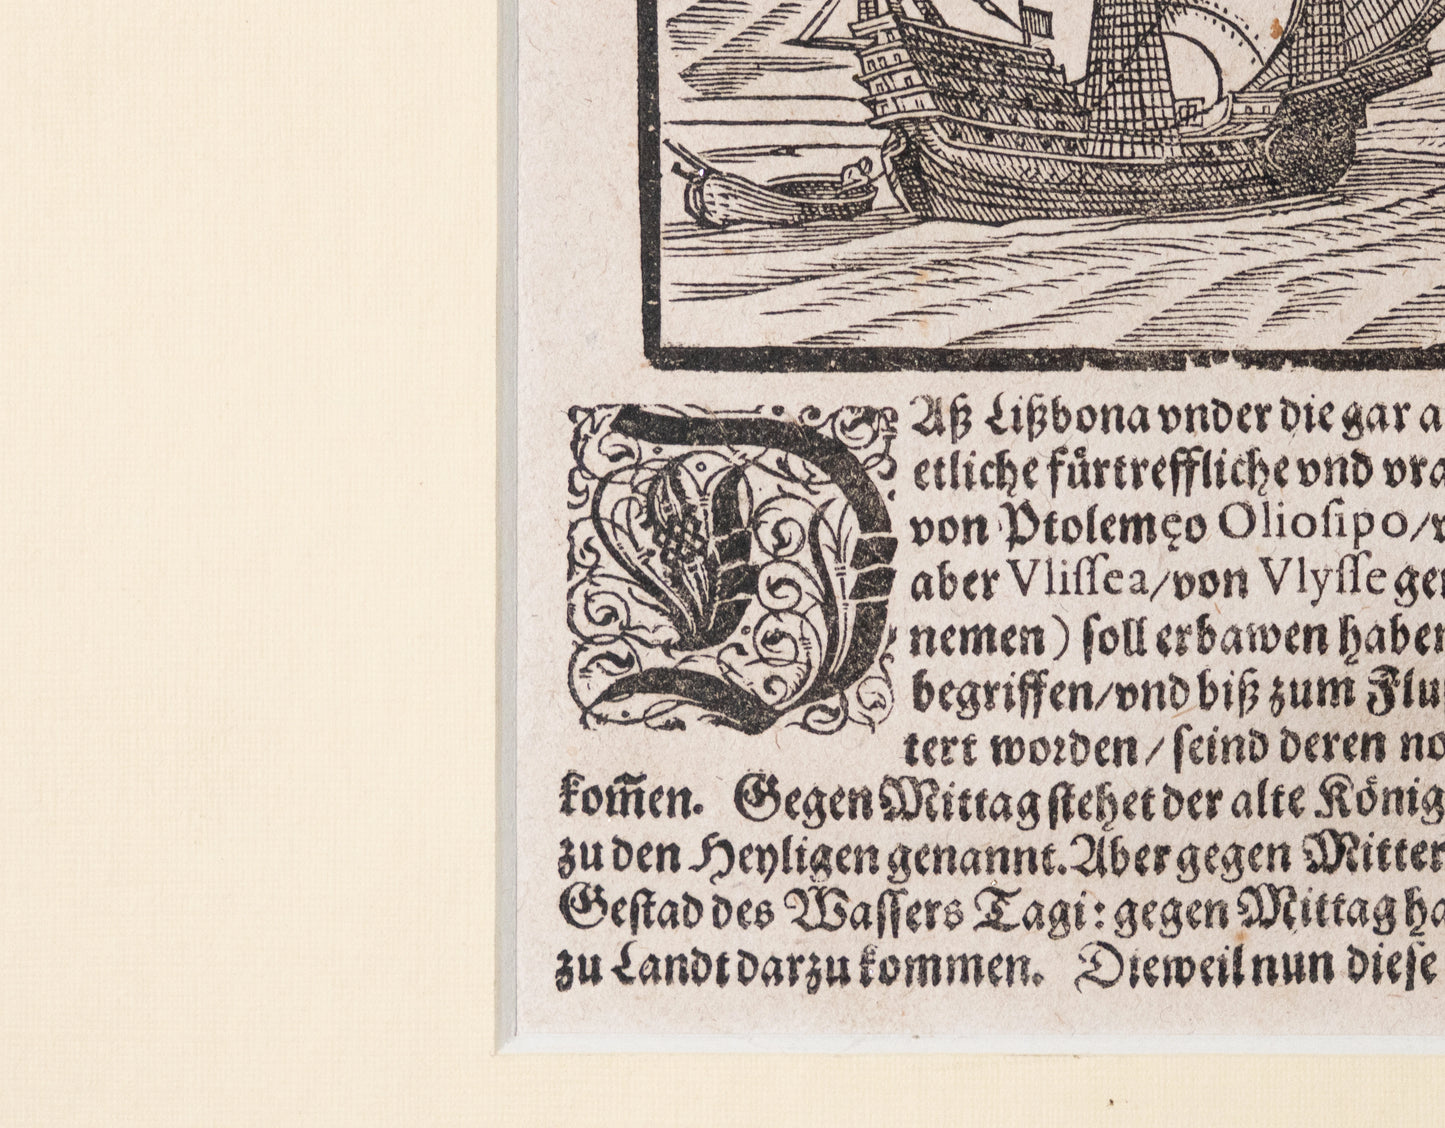 DAß Lißbona vnder die gar a
etliche fürtreffliche vnd vra
von Ptolemęo Oliosipo/v
aber Vlissea/von Vlysse gen
nemen) soll erbawen haben
begriffen/vnd biß zum Flu
tert worden/seind deren no
kom̃en. Gegen Mittag stehet der alte König
zu den Heyligen genannt. Aber gegen Mitter
Gestad des Wassers Tagi: gegen Mittag ha
zu Landt darzu kommen. Dieweil nun diese